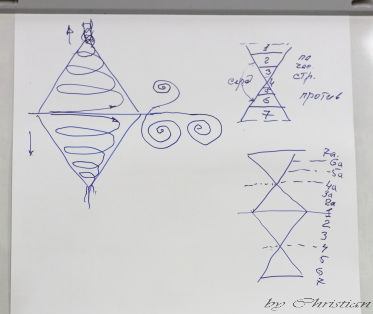 1
2
3
4
5
6
7
серд
по
час.
стр.
против
7а
6а
5а
4а
3а
2а
1
2
3
4
5
6
7
by Christian